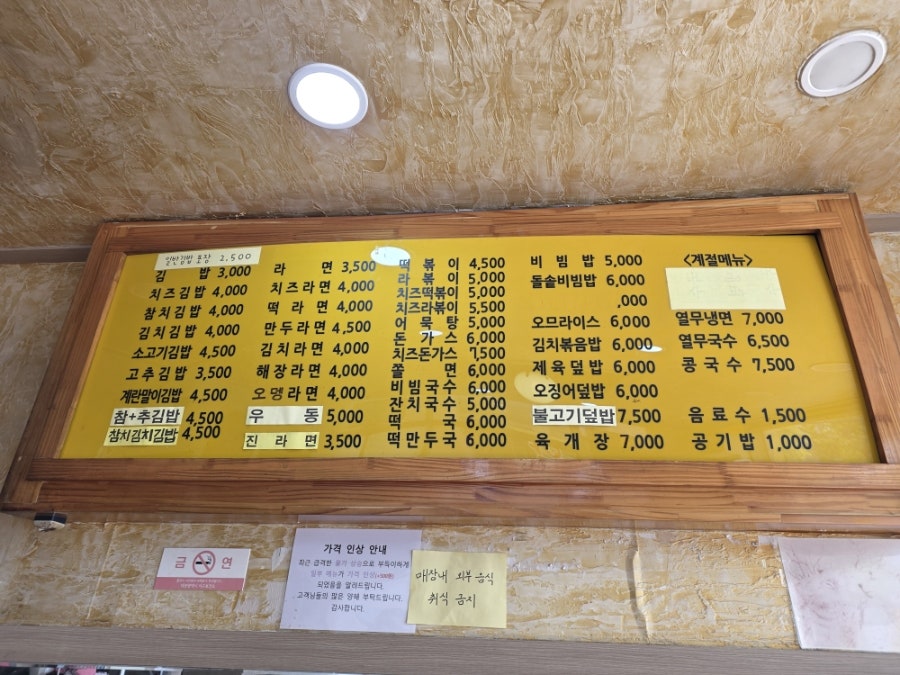 일반김밥 포장 2,500
김 밥 3,000
치즈김밥 4,000
참치김밥 4,000
김치김밥 4,000
소고기김밥 4,500
고추김밥 3,500
계란말이김밥 4,500
참+추김밥 4,500
참치김치김밥 4,500
라 면 3,500
치즈라면 4,000
떡라면 4,000
만두라면 4,500
김치라면 4,000
해장라면 4,000
오뎅라면 4,000
우 동 5,000
진라면 3,500
떡볶이 4,500
라볶이 5,000
치즈떡볶이 5,000
치즈라볶이 5,500
어묵탕 5,000
돈가스 6,000
치즈돈가스 7,500
쫄 면 6,000
비빔국수 6,000
잔치국수 5,000
떡 국 6,000
떡만두국 6,000
비빔밥 5,000
돌솥비빔밥 6,000
,000
오므라이스 6,000
김치볶음밥 6,000
제육덮밥 6,000
오징어덮밥 6,000
불고기덮밥 7,500
육개장 7,000
<계절메뉴>
열무냉면 7,000
열무국수 6,500
콩국수 7,500
음료수 1,500
공기밥 1,000
금 연
가격 인상 안내
최근 급격한 물가 상승으로 부득이하게
일부 메뉴가 가격 인상(+500원)
되었음을 알려드립니다.
고객님들의 많은 양해 부탁드립니다.
감사합니다.
매장내 외부 음식
취식 금지